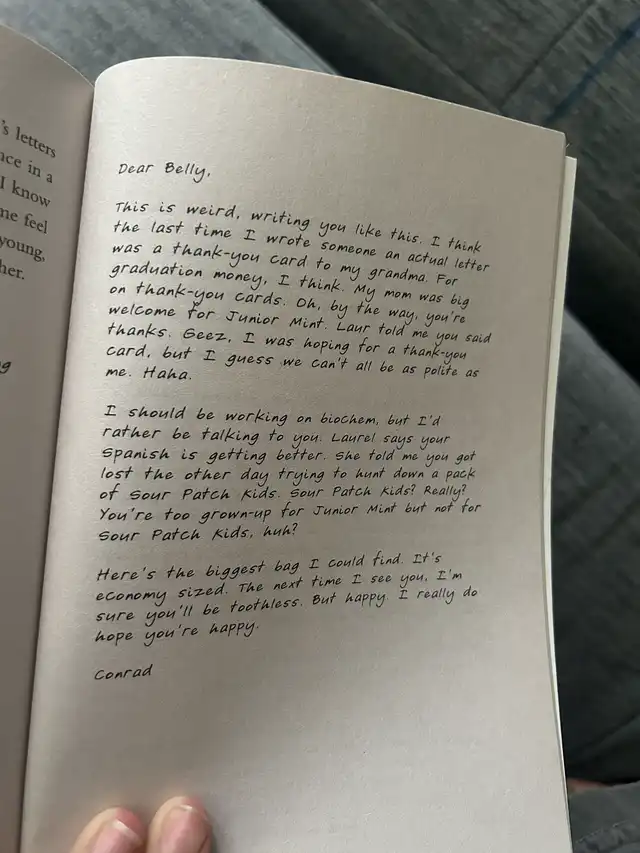 's letters
nce in a
I know
me feel
young,
her.
g
Dear Belly,
This is weird, writing you like this. I think
the last time I wrote someone an actual letter
was a thank-you card to my grandma. For
graduation money, I think. My mom was big
on thank-you cards. Oh, by the way, you're
welcome for Junior Mint. Laur told me you said
thanks. Geez, I was hoping for a thank-you
card, but I guess we can't all be as polite as
me. Haha.
I should be working on biochem, but I'd
rather be talking to you. Laurel says your
Spanish is getting better. She told me you got
lost the other day trying to hunt down a pack
of Sour Patch Kids. Sour Patch Kids? Really?
You're too grown-up for Junior Mint but not for
Sour Patch Kids, huh?
Here's the biggest bag I could find. It's
economy sized. The next time I see you, I'm
sure you'll be toothless. But happy. I really do
hope you're happy.
Conrad